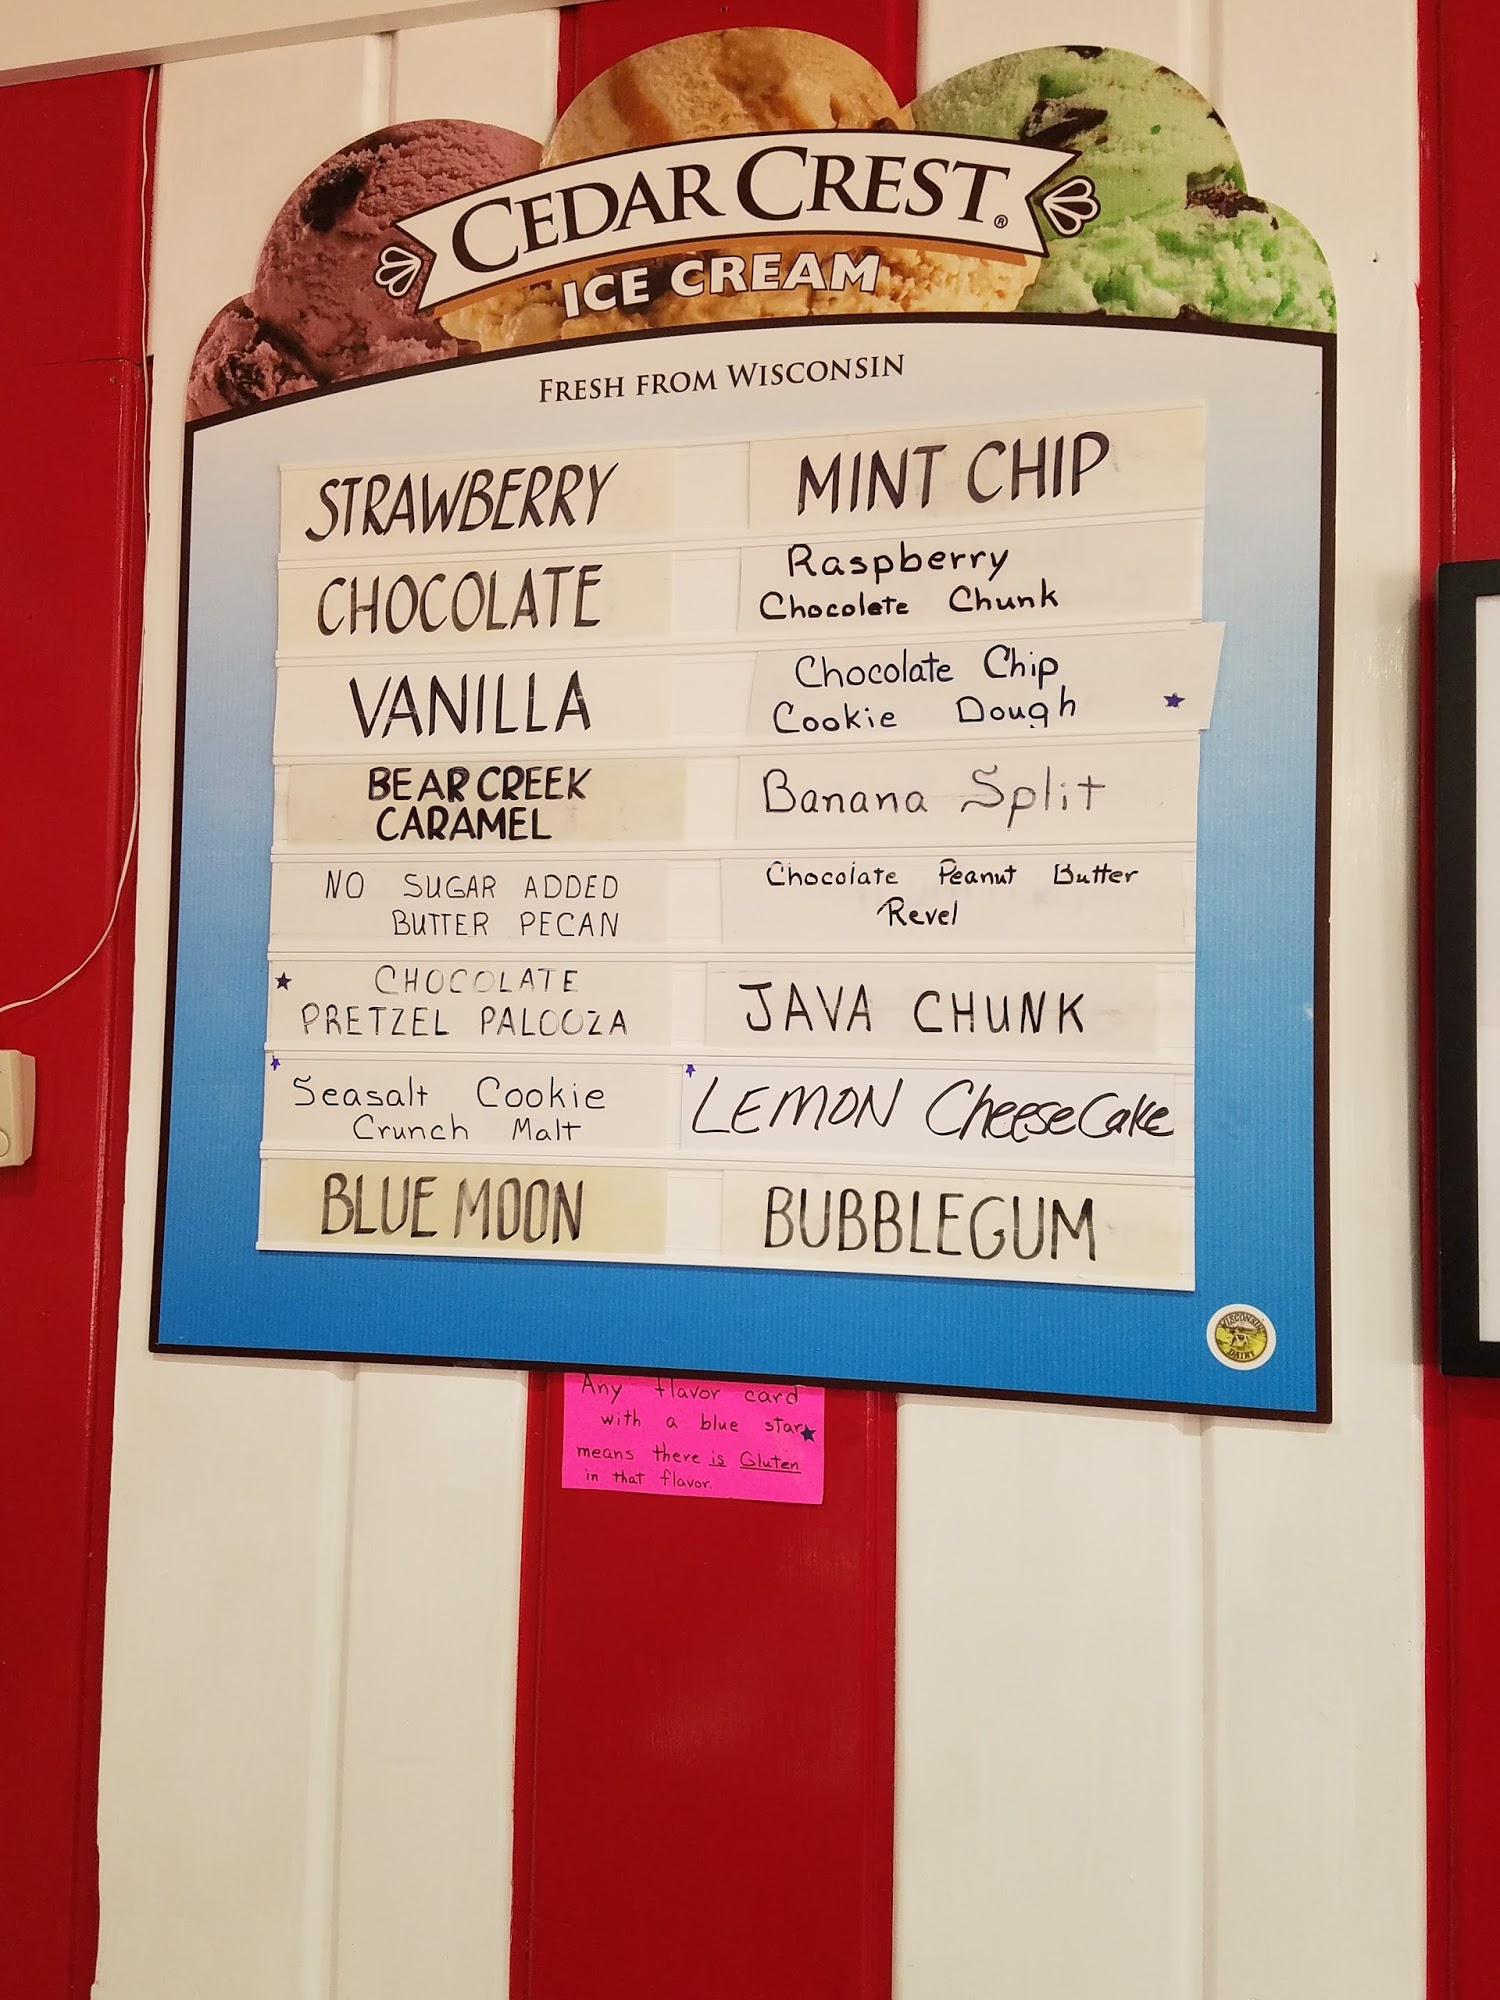 CEDAR CREST®
ICE CREAM
FRESH FROM WISCONSIN
STRAWBERRY
CHOCOLATE
VANILLA
BEAR CREEK
CARAMEL
NO SUGAR ADDED
BUTTER PECAN
CHOCOLATE
PRETZEL PALOOZA
Seasalt Cookie
Crunch Malt
BLUE MOON
MINT CHIP
Raspberry
Chocolate Chunk
Chocolate Chip
Cookie Dough
Banana Split
Chocolate Peanut Butter
Revel
JAVA CHUNK
LEMON CheeseCake
BUBBLEGUM
WISCONSIN
DAIRY
Any flavor card
with a blue star
means there is Gluten
in that flavor.